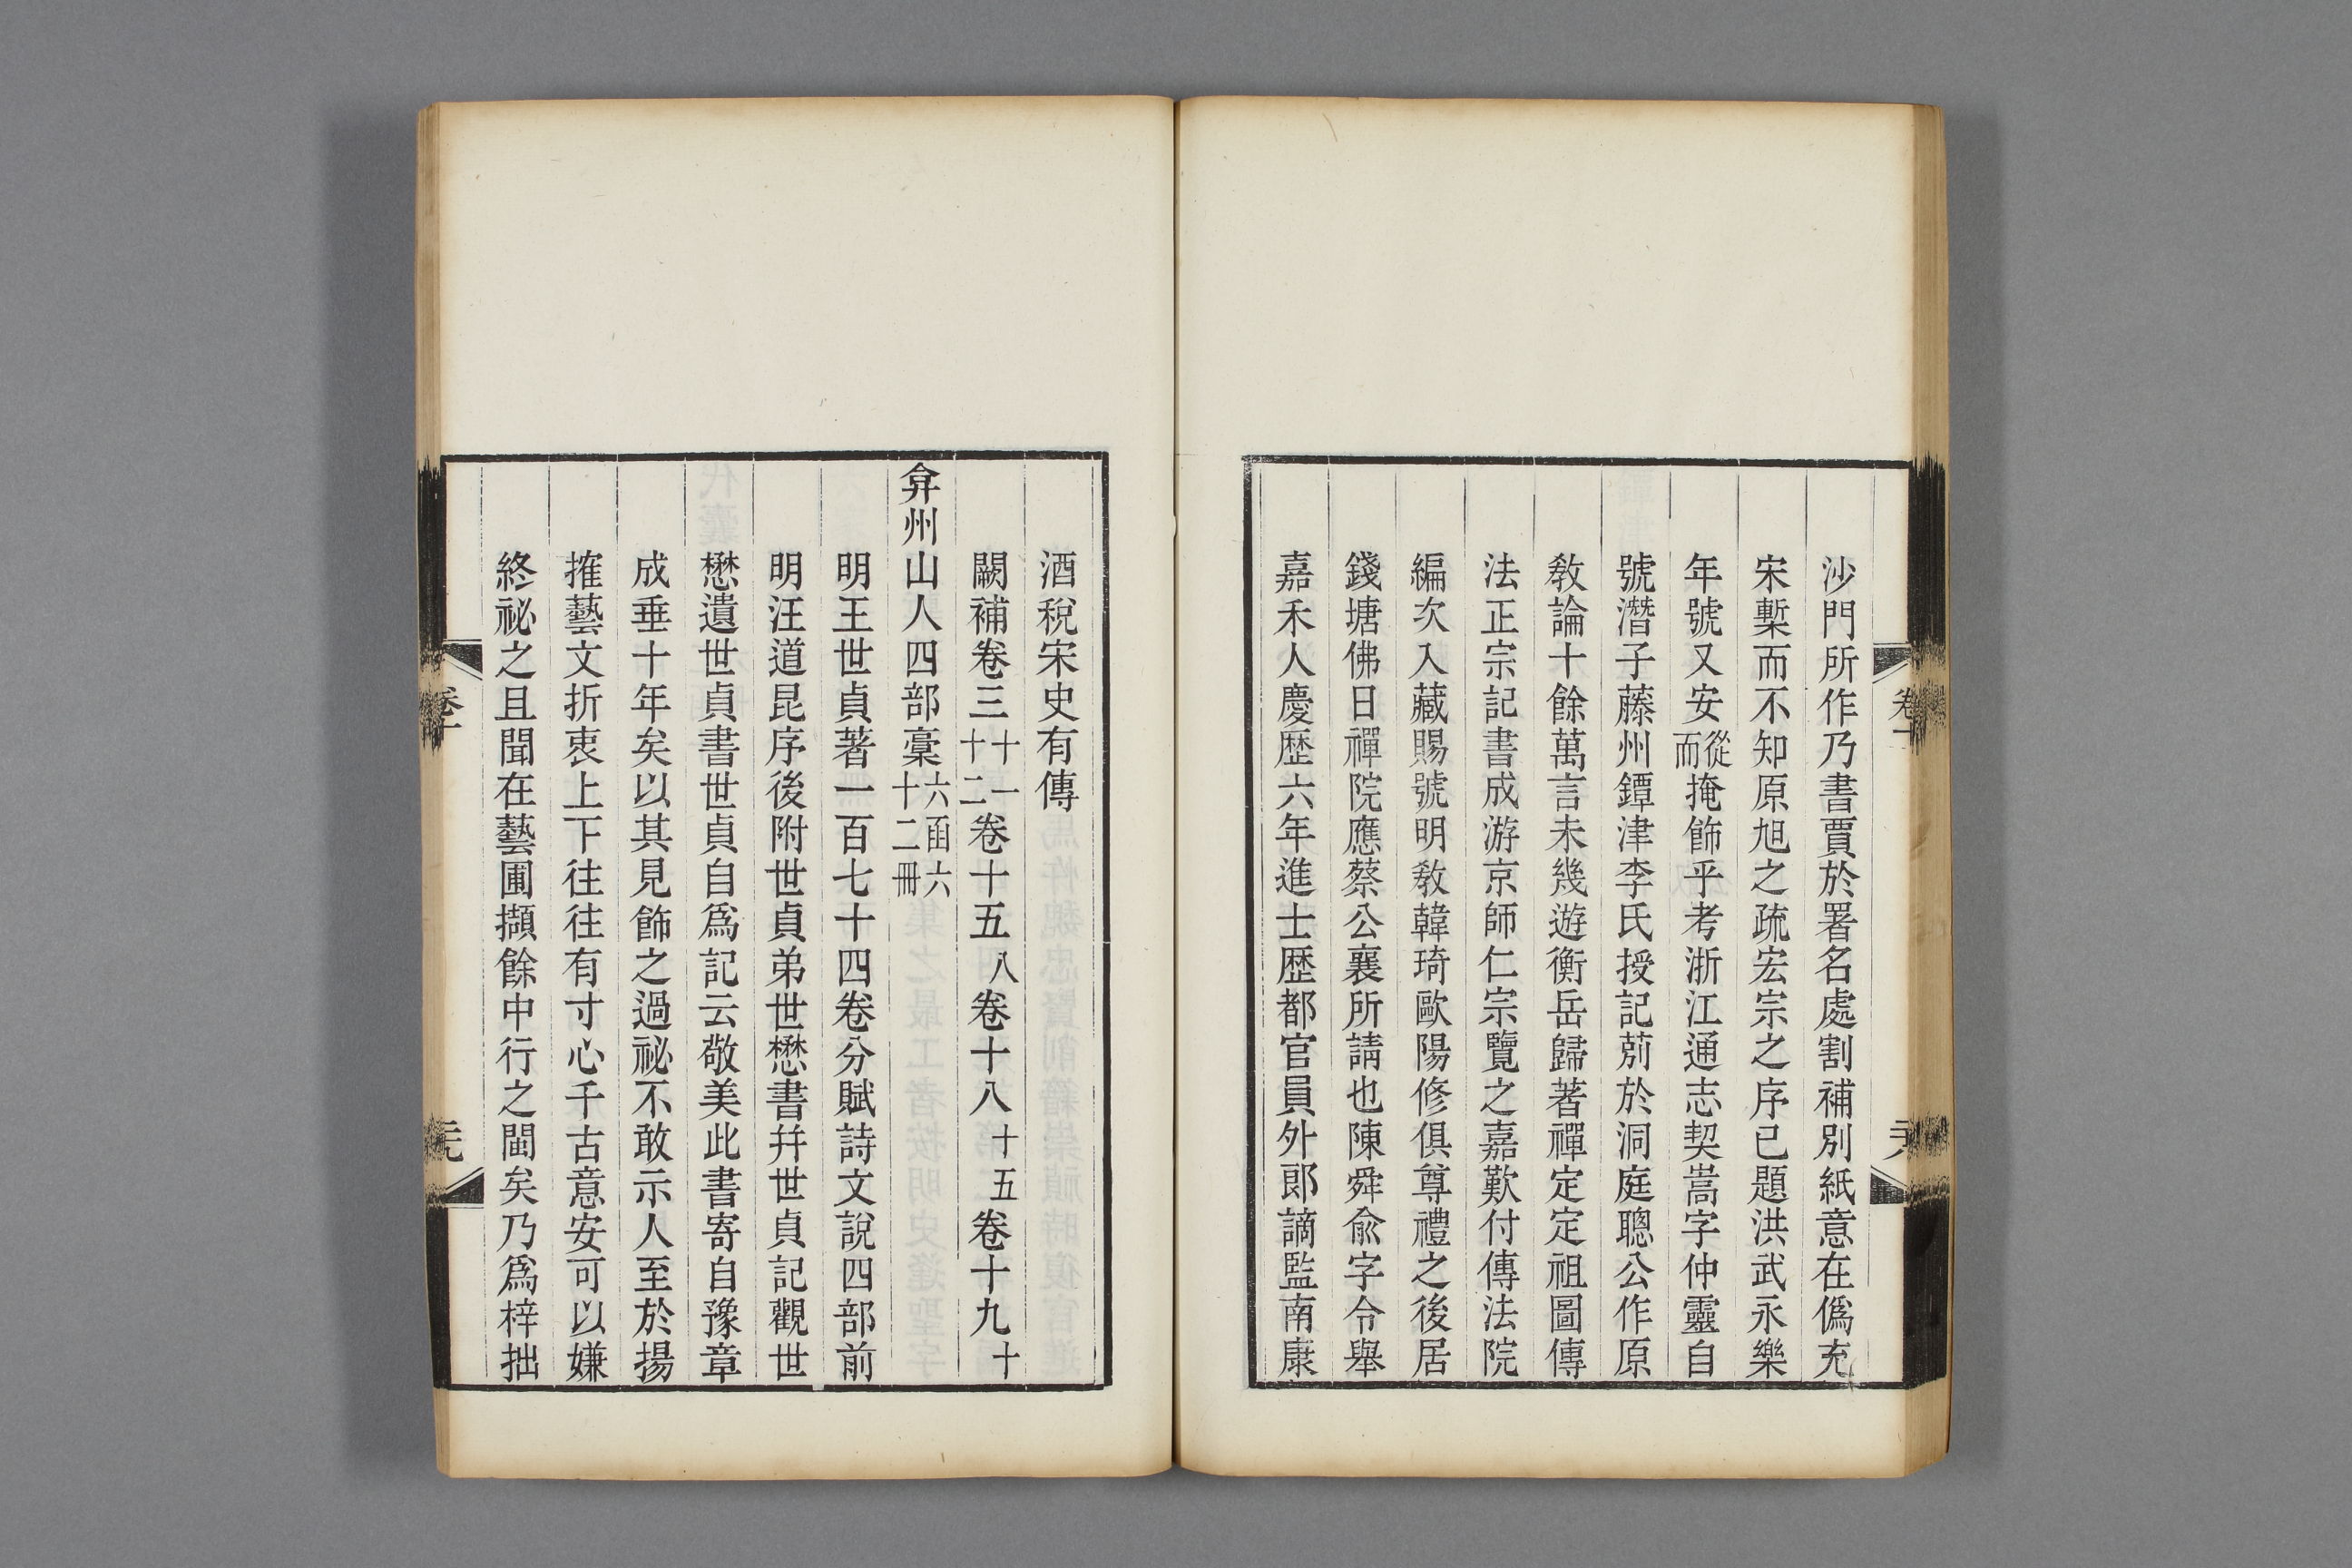 沙門所作乃書賈於署名處割補別紙意在僞充
宋槧而不知原旭之疏宏宗之序已題洪武永樂
年號又安從而掩飾乎考浙江通志契嵩字仲靈自
號潛子藤州鐔津李氏授記莂於洞庭聰公作原
敎論十餘萬言未幾遊衡岳歸著禪定定祖圖傳
法正宗記書成游京師仁宗覽之嘉歎付傳法院
編次入藏賜號明敎韓琦歐陽修俱尊禮之後居
錢塘佛日禪院應蔡公襄所請也陳舜兪字令舉
嘉禾人慶歷六年進士歷都官員外郎謫監南康
酒稅宋史有傳
闕補卷三十一十二卷十五八卷十八十五卷十九十
弇州山人四部稾六函六十二冊
明王世貞著一百七十四卷分賦詩文說四部前
明汪道昆序後附世貞弟世懋書幷世貞記觀世
懋遺世貞書世貞自爲記云敬美此書寄自豫章
成垂十年矣以其見飾之過祕不敢示人至於揚
搉藝文折衷上下往往有寸心千古意安可以嫌
終祕之且聞在藝圃擷餘中行之閩矣乃爲梓拙
卷一
卷一